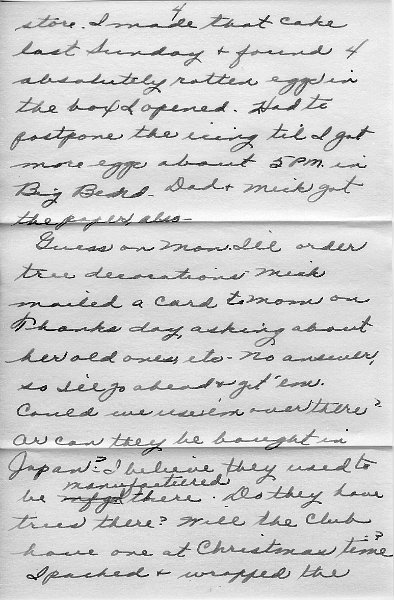 4
store. I made that cake
last Sunday + found 4
absolutely rotten eggs in
the box I opened. Had to
postpone the icing til I got
more eggs about 5 PM in
Big Beard. Dad + Mick got
the paper, also -
Guess on Mon. I'll order
tree decorations. Mick
mailed a card to Mom on
Thanks day, asking about
her old ones, etc - No answer,
so I'll go ahead + get 'em.
Could we use 'em over there?
Or can they be bought in
Japan? I believe they used to
be manufactured there. Do they have
trees there? Will the Club
have one at Christmas time?
I packed + wrapped the